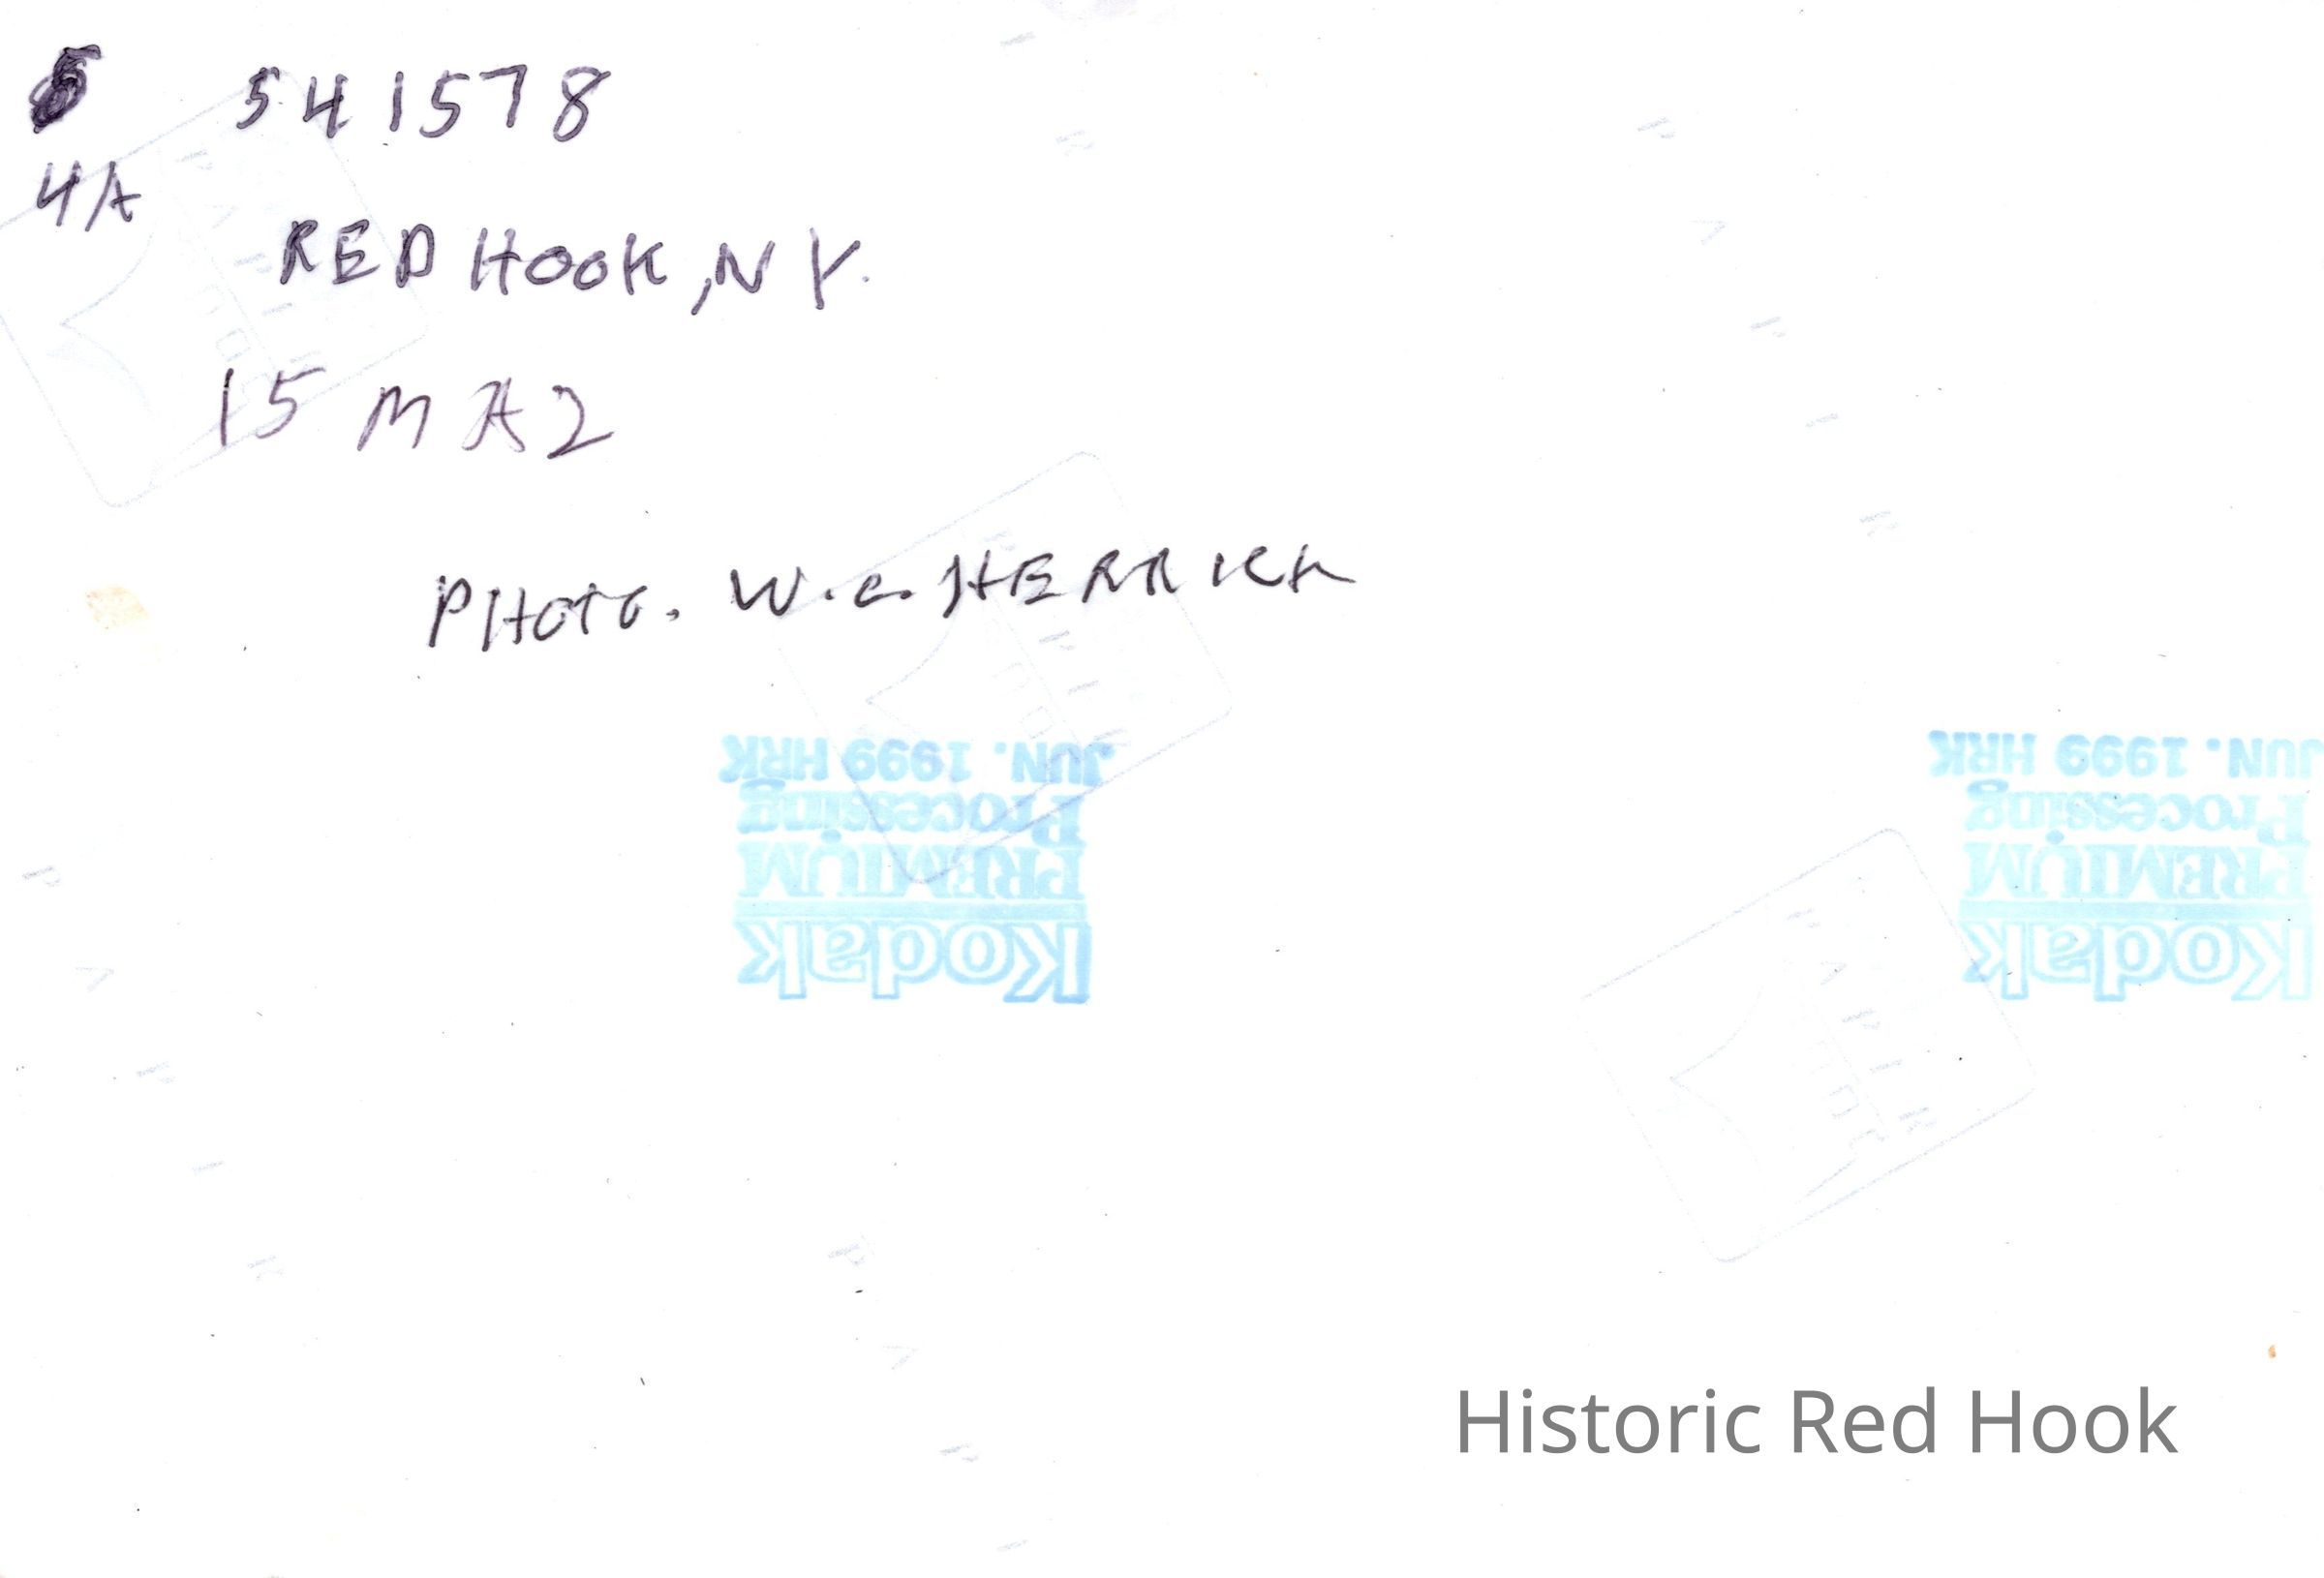 541578
4A
RED HOOK, NY.
15 MA2
PHOTO. W.C. HERRICK
JUN. 1999 HRK
Processing
PREMIUM
Kodak
JUN. 1999 HRK
Processing
PREMIUM
Kodak
Historic Red Hook